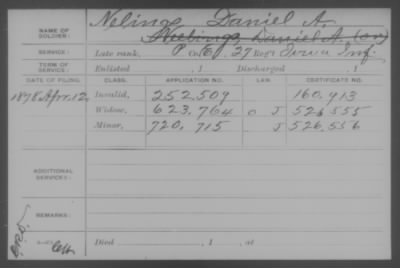 Nelings, Daniel A.
NAME OF SOLDIER: Neelings, Daniel A. (or)
SERVICE: Late rank, P Co. 27 Reg't Iowa Inf.
TERM OF SERVICE: Enlisted , 1 Discharged , 1
DATE OF FILING. CLASS. APPLICATION NO. LAW. CERTIFICATE NO.
1878 Apr. 12, Invalid, 252.509 160.913
Widow, 623.764 O J 526.555
Minor, 720.715 J 526.556
ADDITIONAL SERVICES:
REMARKS:
Died , 1 , at